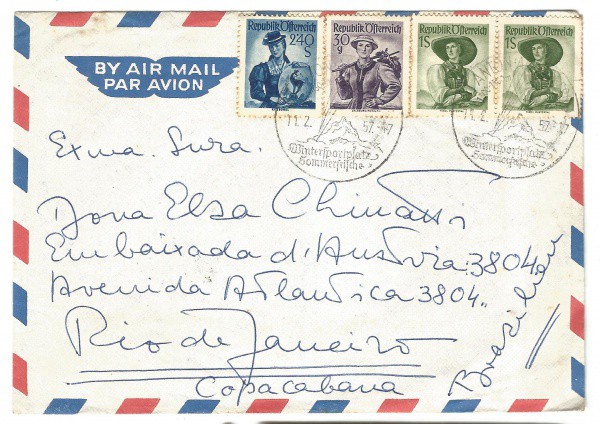 BY AIR MAIL
PAR AVION
Republik Österreich
240
S
Republik Österreich
30
g
Republik Österreich
1S
Republik Österreich
1S
11.2.
57.-17
Wintersportplatz
Sommerfrische
11.2.
57.-17
Wintersportplatz
Sommerfrische
Exma. Snra.
Dona Elsa
Embaixada d'Austria 3804
Avenida Atlantica 3804.
Rio de Janeiro
Copacabana
Brasilien